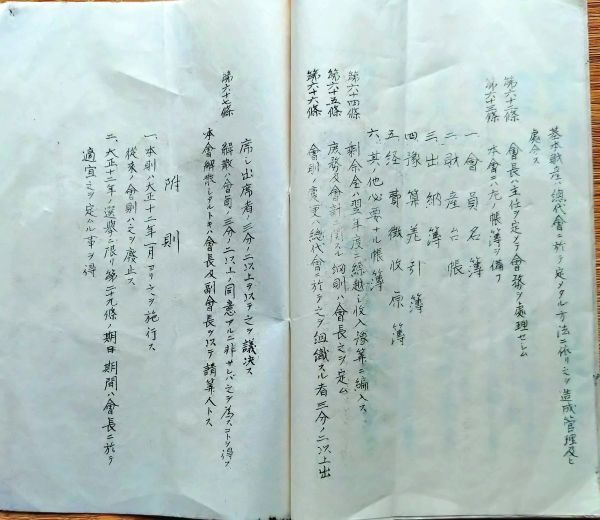 基本財産ハ總代會ニ於テ定メタル方法ニ依リ之ヲ造成管理及ヒ
處分ス
第六十二條 會長ハ主任ヲ定メテ會務ヲ處理セシム
第六十三條 本會ニハ左ノ帳簿ヲ備フ
一會員名簿
二財産台帳
三出納簿
四豫算差引簿
五経費徴收原簿
六其ノ他必要ナル帳簿
第六十四條 剰余金ハ翌年度ニ繰越シ收入豫算ニ編入ス
第六十五條 庶務及會計ニ関スル細則ハ會長之ヲ定ム
第六十六條 會則ノ変更ハ總代會ニ於テ之ヲ組織スル者三分ノ二以上出
席シ出席者ノ三分ノ二以上ヲ以テ之ヲ議決ス
第六十七條 解散ハ會員ノ三分ノ二以上ノ同意アルニ非サレバ之ヲ為スコトヲ得ス
本會解散シタルトキハ會長及副會長ヲ以テ請算人トス
附則
一、本則ハ大正十二年一月ヨリ之ヲ施行ス
従来ノ會則ハ之ヲ廃止ス
二、大正十二年ノ選挙ニ限リ第二十九條ノ期日期間ハ會長ニ於テ
適宜之ヲ定ムル事ヲ得